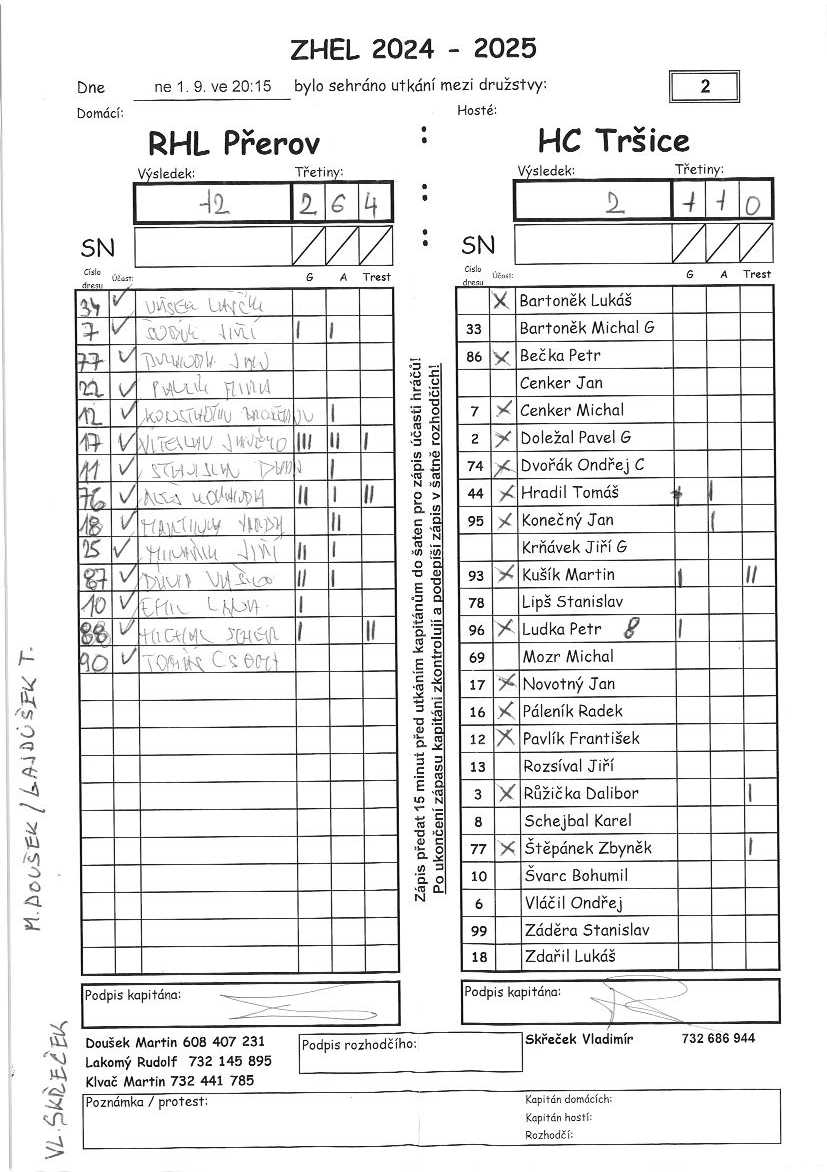 ZHEL 2024 - 2025
Dne ne 1. 9. ve 20:15 bylo sehráno utkání mezi družstvy: 2
Domácí: Hosté:
RHL Přerov : HC Tršice
Výsledek: Třetiny: Výsledek: Třetiny:
12 2 6 4 : 2 1 1 0
SN : SN
Číslo dresu Účast: G A Trest Číslo dresu Účast: G A Trest
34 ✓ X Bartoněk Lukáš
7 ✓ JIŘÍ I I 33 Bartoněk Michal G
77 ✓ 86 X Bečka Petr
22 ✓ Cenker Jan
12 ✓ I 7 X Cenker Michal
17 ✓ III II I 2 X Doležal Pavel G
11 ✓ I 74 X Dvořák Ondřej C
76 ✓ II I II 44 X Hradil Tomáš I I
18 ✓ II 95 X Konečný Jan I
25 ✓ JIŘÍ II I Krňávek Jiří G
87 ✓ DAVID II I 93 X Kušík Martin I II
10 ✓ EMIL I 78 Lipš Stanislav
88 ✓ MICHAL I II 96 X Ludka Petr 8 I
90 ✓ TOMÁŠ 69 Mozr Michal
17 X Novotný Jan
16 X Páleník Radek
12 X Pavlík František
13 Rozsíval Jiří
3 X Růžička Dalibor I
8 Schejbal Karel
77 X Štěpánek Zbyněk I
10 Švarc Bohumil
6 Vláčil Ondřej
99 Záděra Stanislav
18 Zdařil Lukáš
Zápis předat 15 minut před utkáním kapitánům do šaten pro zápis účasti hráčů!
Po ukončení zápasu kapitáni zkontrolují a podepíší zápis v šatně rozhodčích!
M. DOUŠEK / GAJDŮŠEK T.
VL. SKŘEČEK
Podpis kapitána: Podpis kapitána:
Doušek Martin 608 407 231 Podpis rozhodčího: Skřeček Vladimír 732 686 944
Lakomý Rudolf 732 145 895
Klvač Martin 732 441 785
Poznámka / protest: Kapitán domácích:
Kapitán hostí:
Rozhodčí: